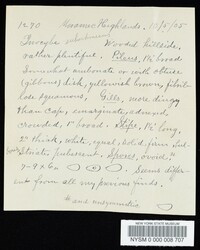 1270 Masonic Highlands, 10/5/05
Inocybe subochracea Wooded hillside,
rather plentiful. Pileus, 1½ broad
Somewhat umbonate or with obtuse
(gibbous) disk, yellowish brown, fibril-
lose squamose, Gills, more dingy
than cap, emarginate, adnexed,
crowded, 1" broad. Stipe, 1½ long,
2" thick, white, equal, solid, firm, sub-
Striate, pubescent. Spores, ovoid,
7-9 x 6. Seems differ-
ent from all my previous finds.
NEW YORK STATE MUSEUM
NYSM 0 000 008 707